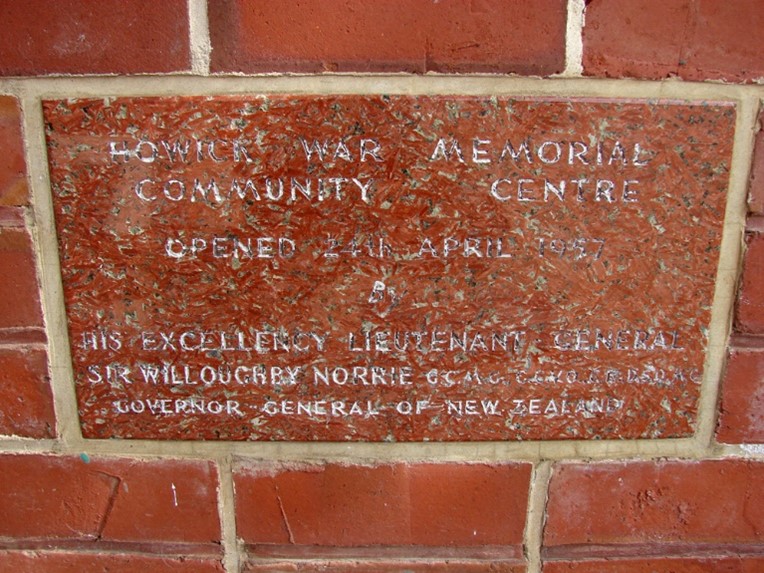 HOWICK WAR MEMORIAL
COMMUNITY CENTRE
OPENED 24th APRIL 1957
By
HIS EXCELLENCY LIEUTENANT GENERAL
SIR WILLOUGHBY NORRIE G.C.M.G. G.C.V.O. C.B. D.S.O. M.C.
GOVERNOR GENERAL OF NEW ZEALAND